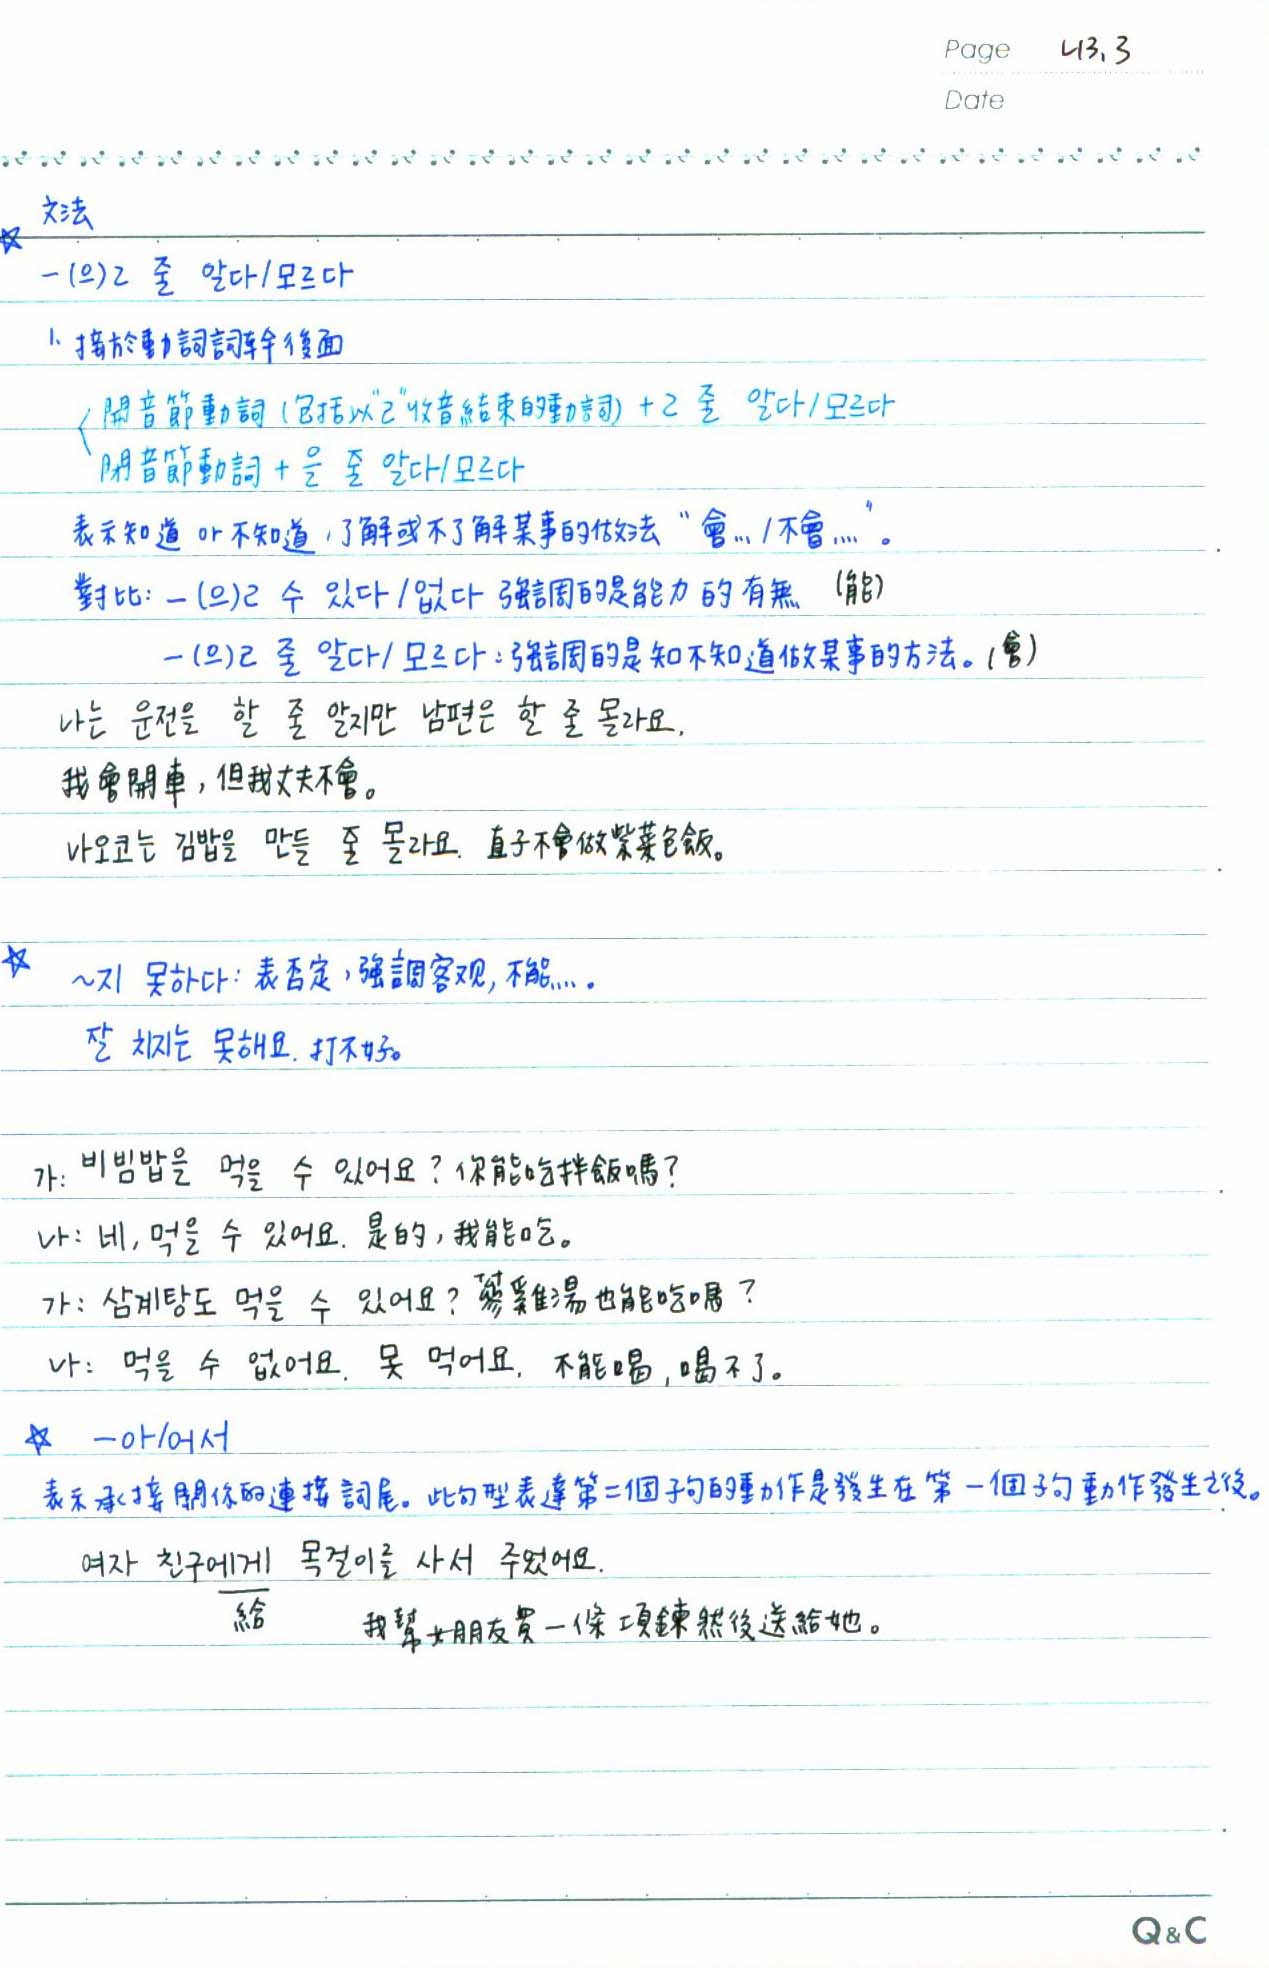 Page 43.3
Date
文法
☆
-(으)ㄹ 줄 알다/모르다
1. 接於動詞詞幹後面
開音節動詞 (包括以"ㄹ"收音結束的動詞) + ㄹ 줄 알다/모르다
閉音節動詞 + 을 줄 알다/모르다
表示知道 or 不知道,了解或不了解某事的做法 "會…/不會…"。
對比: -(으)ㄹ 수 있다/없다 強調的是能力的有無 (能)
-(으)ㄹ 줄 알다/모르다:強調的是知不知道做某事的方法。(會)
나는 운전을 할 줄 알지만 남편은 할 줄 몰라요.
我會開車,但我丈夫不會。
나오코는 김밥을 만들 줄 몰라요. 直子不會做紫菜包飯。
☆ ~지 못하다: 表否定,強調客观,不能….
잘 치지는 못해요. 打不好。
가: 비빔밥을 먹을 수 있어요? 你能吃拌飯嗎?
나: 네, 먹을 수 있어요. 是的,我能吃。
가: 삼계탕도 먹을 수 있어요? 蔘雞湯也能吃嗎?
나: 먹을 수 없어요. 못 먹어요. 不能喝,喝不了。
☆ -아/어서
表示承接關係的連接詞尾。此句型表達第二個子句的動作是發生在第一個子句動作發生之後。
여자 친구에게 목걸이를 사서 주었어요.
給 我幫女朋友買一條項鍊然後送給她。
Q&C